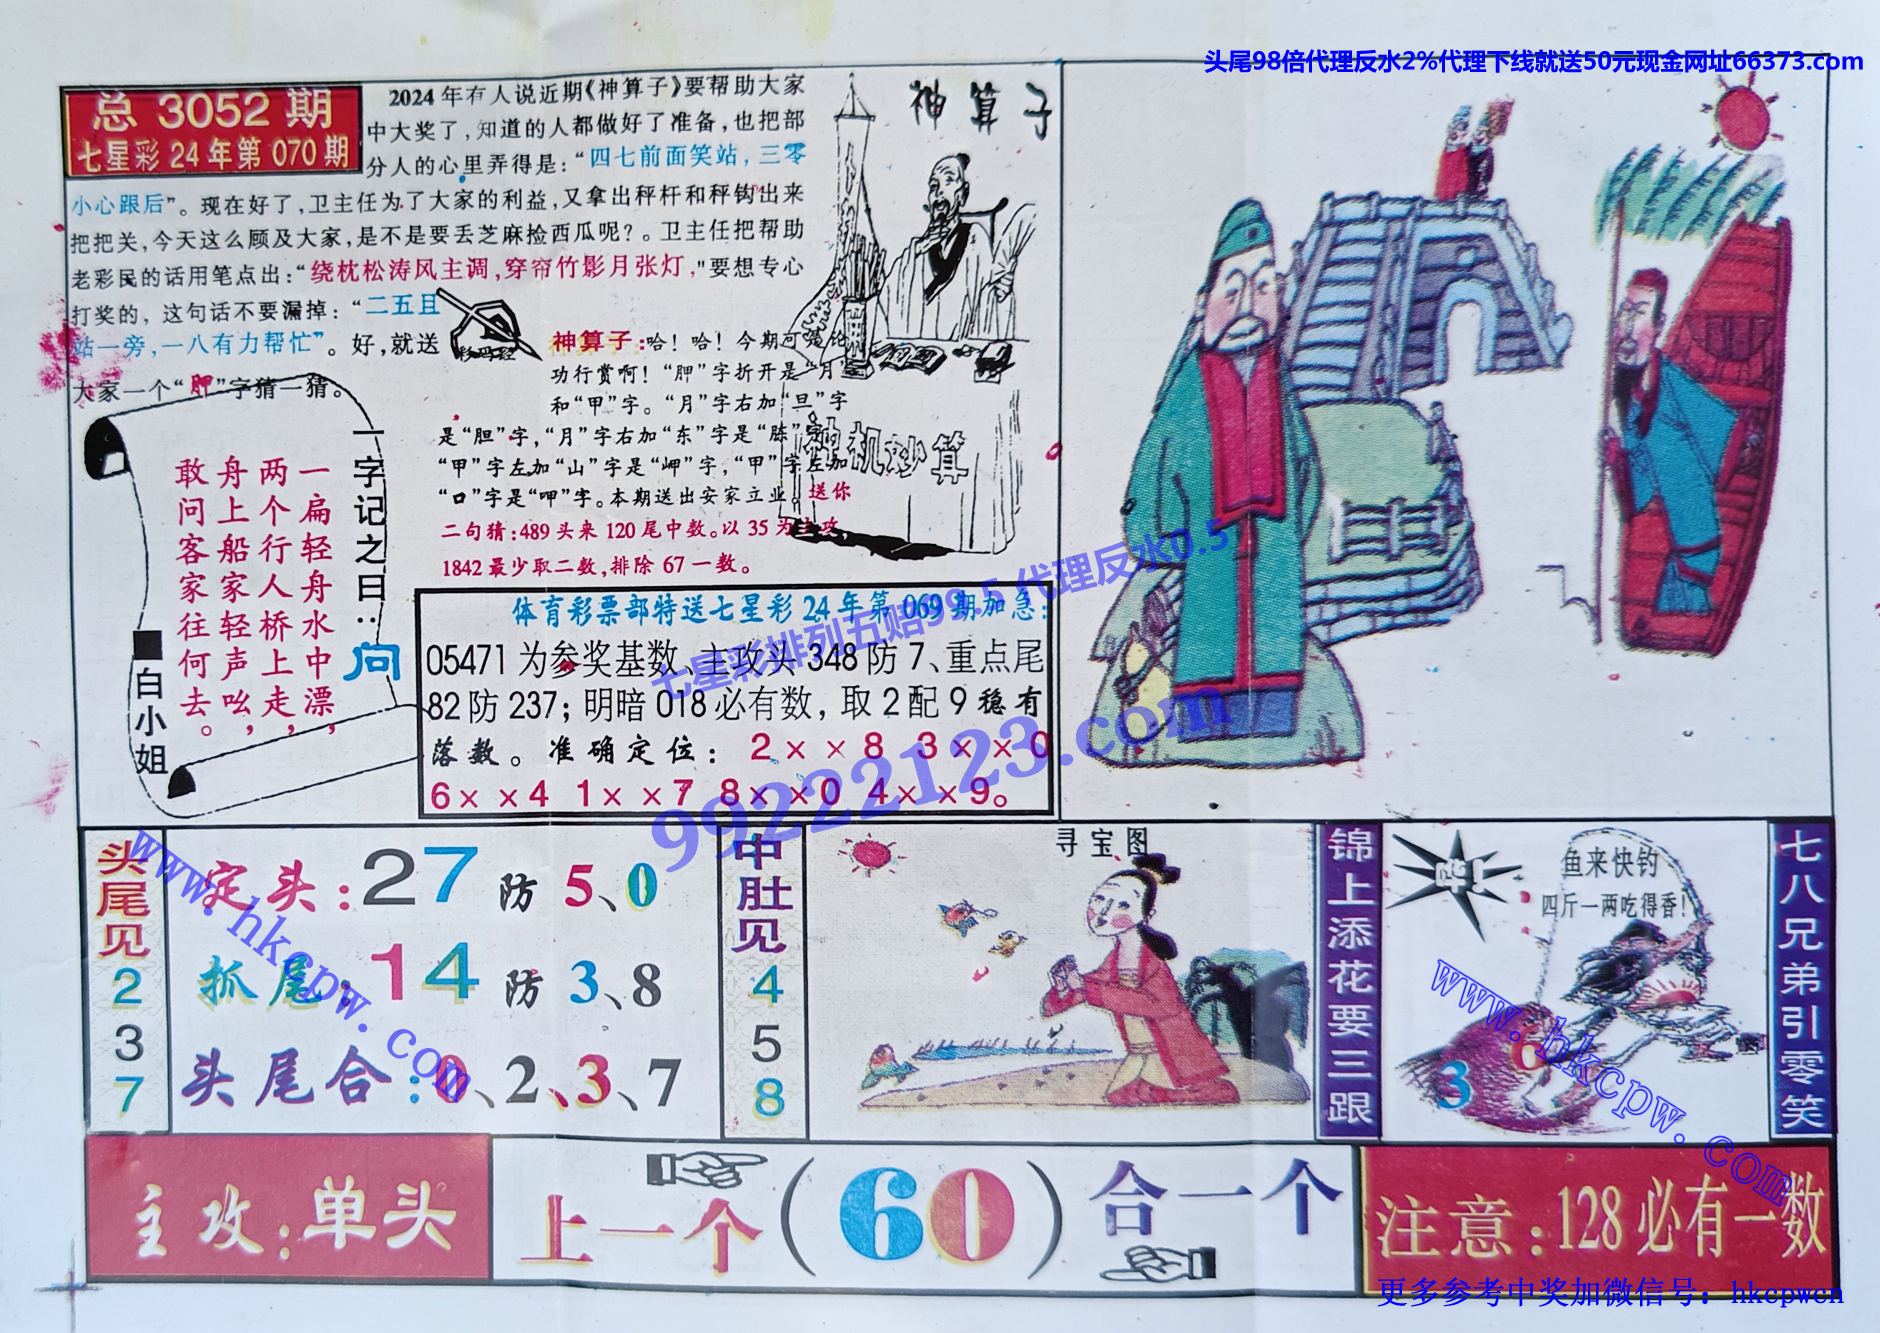 头尾98倍代理反水2%代理下线就送50元现金网址66373.com
总 3052 期
七星彩 24 年第 070 期
2024年有人说近期《神算子》要帮助大家
中大奖了,知道的人都做好了准备,也把部
分人的心里弄得是:“四七前面笑站,三零
小心跟后”。现在好了,卫主任为了大家的利益,又拿出秤杆和秤钩出来
把把关,今天这么顾及大家,是不是要丢芝麻捡西瓜呢?。卫主任把帮助
老彩民的话用笔点出:“绕枕松涛风主调,穿帘竹影月张灯,"要想专心
打奖的, 这句话不要漏掉: “二五且
站一旁,一八有力帮忙”。好,就送
大家一个“胛”字猜一猜。
神算子
神算子:哈! 哈! 今期可是论
功行赏啊! “胛”字折开是“月”
和“甲”字。“月”字右加“旦”字
是“胆”字,“月”字右加“东”字是“胨”字
“甲”字左加“山”字是“岬”字,“甲”字左加
“口”字是“呷”字。本期送出安家立业。送你
二句猜:489 头来 120 尾中数。以 35 为主攻
1842 最少取二数,排除 67 一数。
神机妙算
一字记之曰:问
一扁轻舟水中漂,
两个行人桥上走,
舟上船家轻声吆,
敢问客家往何去。
■白小姐
体育彩票部特送七星彩 24 年第 069 期加急:
05471 为参奖基数、主攻头 348 防 7、重点尾
82 防 237; 明暗 018 必有数, 取 2 配 9 稳有
落数。准确定位: 2××8 3××0
6××4 1××7 8××0 4××9。
七星彩排列五赔99.5 代理反水0.5
99222123.com
头尾见
2
3
7
定头:27 防 5、0
抓尾:14 防 3、8
头尾合:0、2、3、7
中肚见
4
5
8
寻宝图
锦上添花要三跟
鱼来快钓
四斤一两吃得香!
3
6
七八兄弟引零笑
www.hkcpw.com
www.hkcpw.com
主攻:单头
上一个(60)合一个
注意:128 必有一数
更多参考中奖加微信号:hkcpwcn